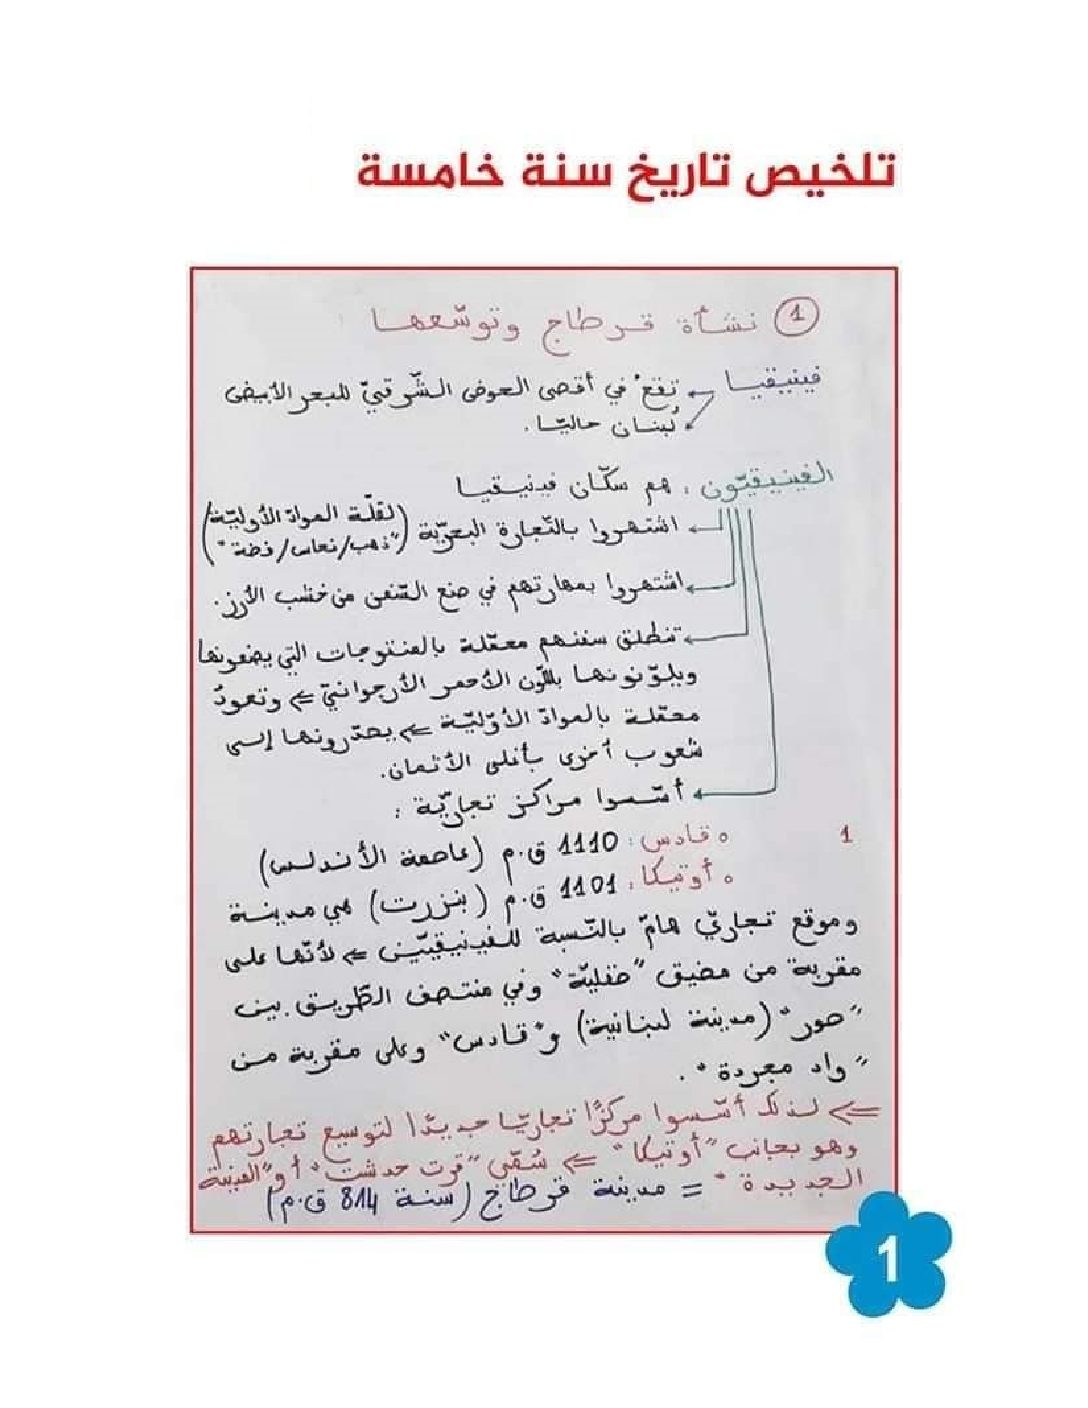 تلخيص تاريخ سنة خامسة
1 نشأة قرطاج وتوسّعها
فينيقيا ← تقعُ في أقصى الحوض الشّرقيّ للبحر الأبيض
← لُبنان حاليّا.
الفينيقيّون: هم سكّان فينيقيا
← اشتهروا بالتّجارة البحريّة (لقلّة الموادّ الأوّليّة)
("ذهب/نحاس/فضة")
← اشتهروا بمهارتهم في صنع السّفن من خشب الأرز.
← تنطلق سفنهم محمّلة بالمنتوجات التي يصنعونها
ويلوّنونها باللّون الأحمر الأرجوانيّ ⇐ وتعودُ
محمّلة بالموادّ الأوّليّة ⇐ يصدّرونها إلى
شعوب أخرى بأغلى الأثمان.
← أسّسوا مراكز تجاريّة :
1 ○ قادس: 1110 ق.م (عاصمة الأندلس)
○ أوتيكا: 1101 ق.م (بنزرت) هي مدينة
وموقع تجاريّ هامّ بالنّسبة للفينيقيّين ⇐ لأنّها على
مقربة من مضيق "صقليّة" وفي منتصف الطّريق بين
"صور" (مدينة لبنانية) و"قادس" وعلى مقربة من
"واد مجردة".
⇐ لذلك أسّسوا مركزًا تجاريّا جديدًا لتوسيع تجارتهم
وهو بجانب "أوتيكا" ⇐ سُمّي "قرت حدشت" أو "المدينة
الجديدة" = مدينة قرطاج (سنة 814 ق.م)
1